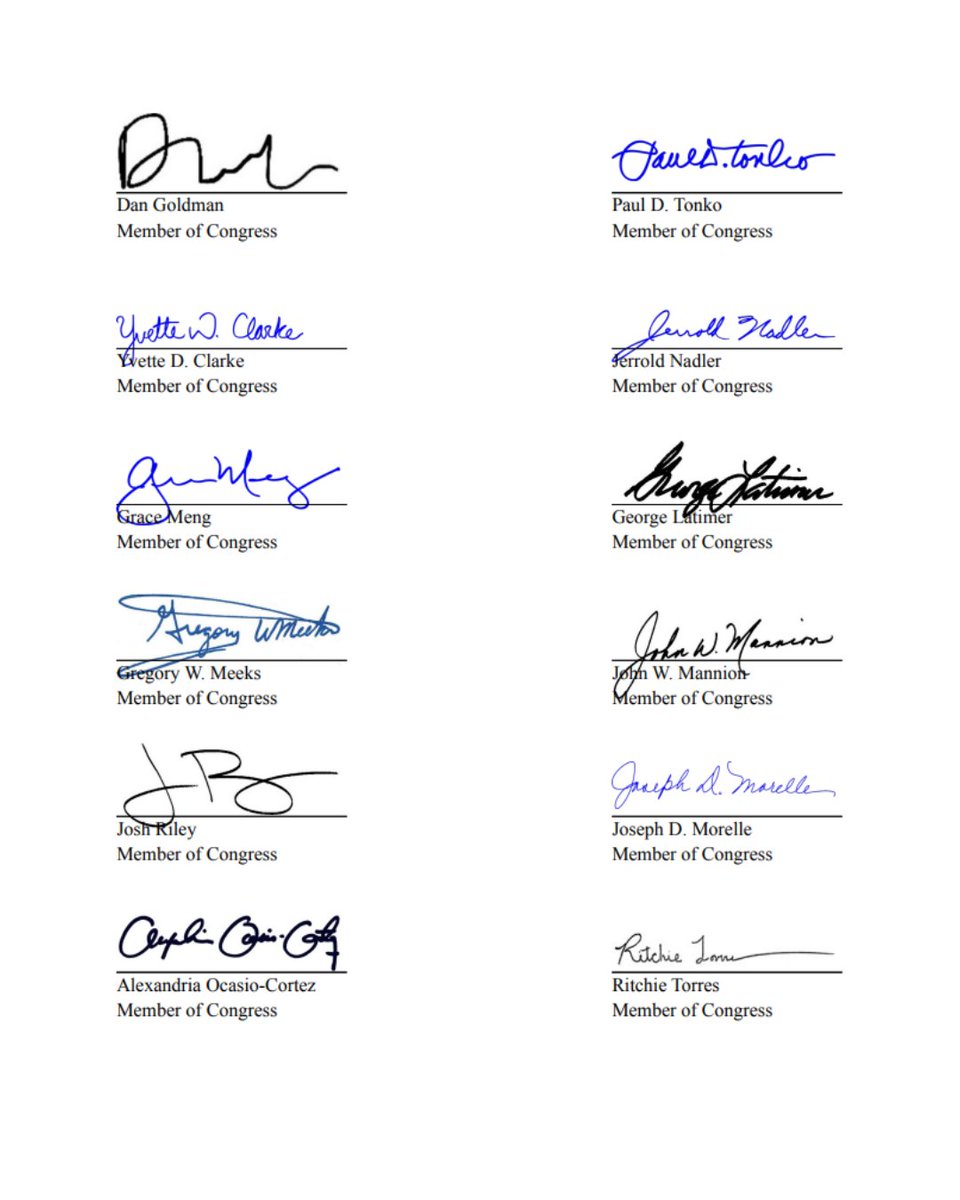 Paul D. Tonko
Dan Goldman
Paul D. Tonko
Member of Congress
Member of Congress
Yvette D. Clarke
Jerrold Nadler
Yvette D. Clarke
Jerrold Nadler
Member of Congress
Member of Congress
Grace Meng
George Latimer
Grace Meng
George Latimer
Member of Congress
Member of Congress
Gregory W Meeks
John W. Mannion
Gregory W. Meeks
John W. Mannion
Member of Congress
Member of Congress
Joseph D. Morelle
Josh Riley
Joseph D. Morelle
Member of Congress
Member of Congress
Ritchie Torres
Alexandria Ocasio-Cortez
Ritchie Torres
Member of Congress
Member of Congress